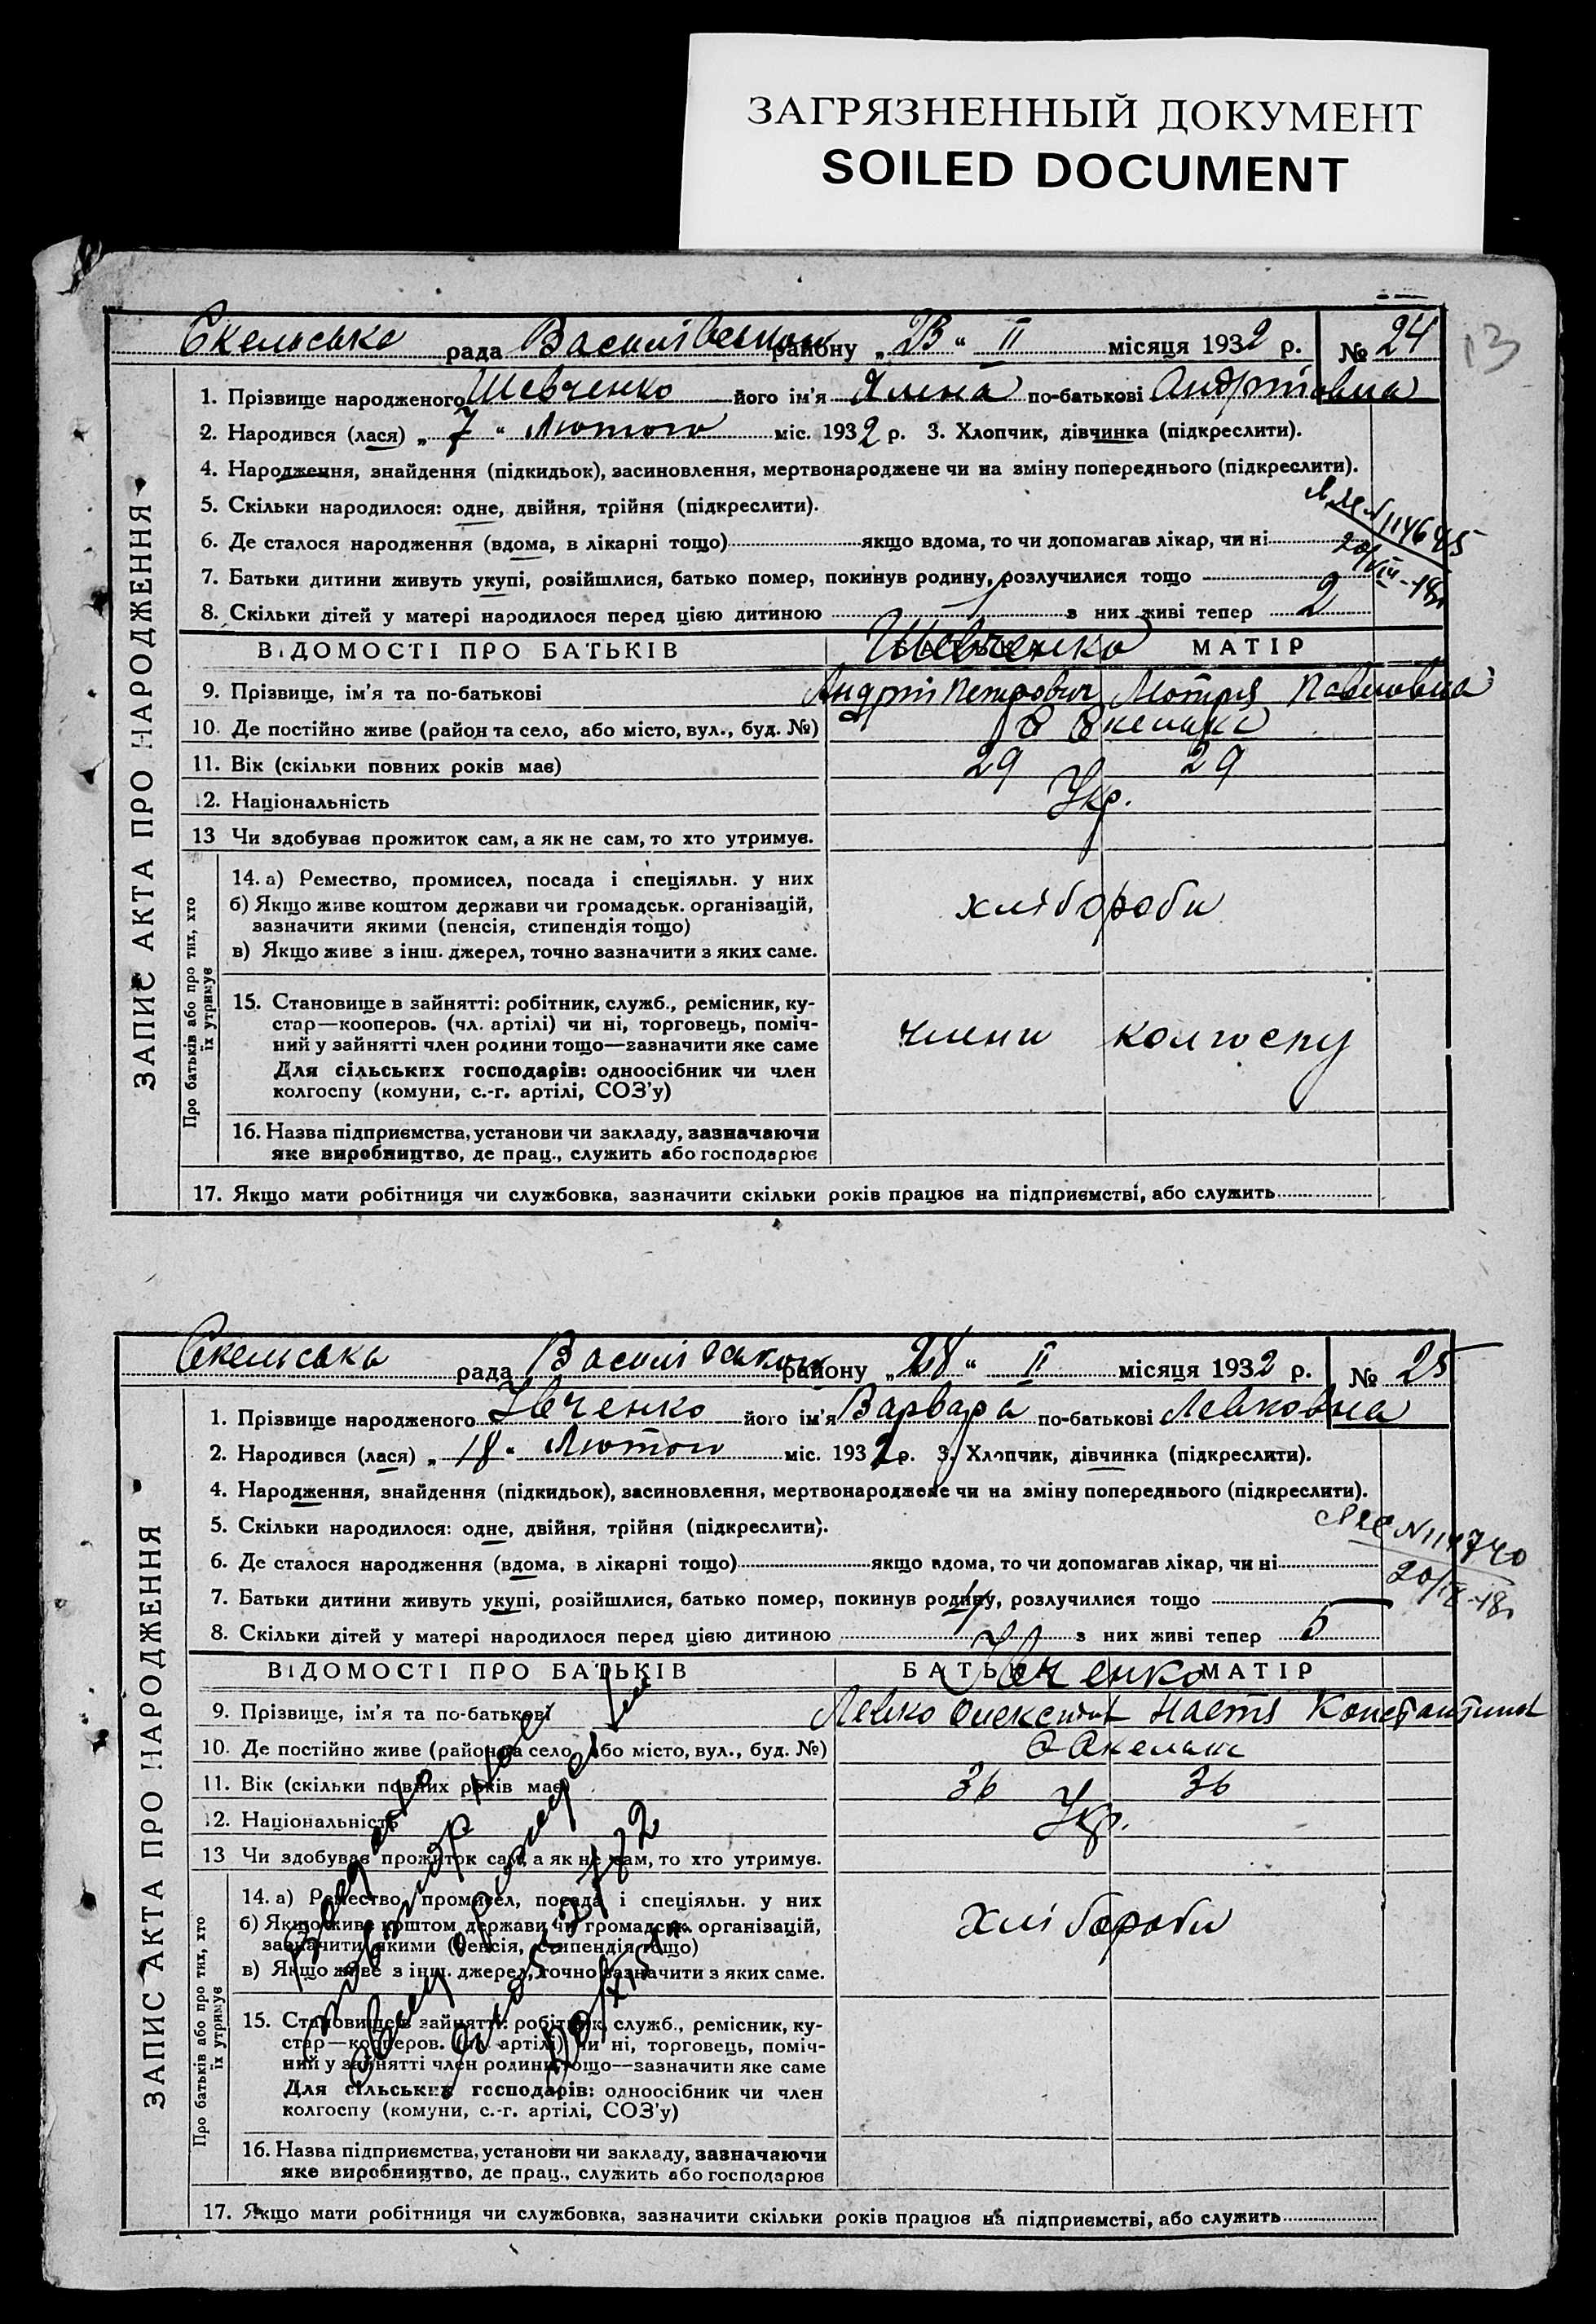 ЗАГРЯЗНЕННЫЙ ДОКУМЕНТ
SOILED DOCUMENT
13
Скельська рада Василівського району „23“ II місяця 1932 р. № 24
ЗАПИС АКТА ПРО НАРОДЖЕННЯ
1. Прізвище народженого Шевченко його ім'я Ялена по-батькові Андріївна
2. Народився (лася) „7“ Лютого міс. 1932 р. 3. Хлопчик, дівчинка (підкреслити).
4. Народження, знайдення (підкидьок), засиновлення, мертвонароджене чи на зміну попереднього (підкреслити).
5. Скільки народилося: одне, двійня, трійня (підкреслити).
6. Де сталося народження (вдома, в лікарні тощо) якщо вдома, то чи допомагав лікар, чи ні
7. Батьки дитини живуть укупі, розійшлися, батько помер, покинув родину, розлучилися тощо
8. Скільки дітей у матері народилося перед цією дитиною з них живі тепер 2
ВІДОМОСТІ ПРО БАТЬКІВ Шевченко МАТІР
9. Прізвище, ім'я та по-батькові Андрій Петрович Мотря Павловна
10. Де постійно живе (район та село, або місто, вул., буд. №) с Скельки
11. Вік (скільки повних років має) 29 29
12. Національність Укр.
13 Чи здобуває прожиток сам, а як не сам, то хто утримує.
Про батьків або про тих, хто їх утримує
14. а) Ремество, промисел, посада і спеціяльн. у них
б) Якщо живе коштом держави чи громадськ. організацій,
зазначити якими (пенсія, стипендія тощо)
хлібороби
в) Якщо живе з інш. джерел, точно зазначити з яких саме.
15. Становище в зайнятті: робітник, служб., ремісник, ку-
стар—кооперов. (чл. артілі) чи ні, торговець, поміч-
ний у зайнятті член родини тощо—зазначити яке саме
члени колгоспу
Для сільських господарів: одноосібник чи член
колгоспу (комуни, с.-г. артілі, СОЗ'у)
16. Назва підприємства, установи чи закладу, зазначаючи
яке виробництво, де прац., служить або господарює
17. Якщо мати робітниця чи службовка, зазначити скільки років працює на підприємстві, або служить
Скельська рада Василівського району „28“ II місяця 1932 р. № 25
ЗАПИС АКТА ПРО НАРОДЖЕННЯ
1. Прізвище народженого Івченко його ім'я Варвара по-батькові Левковна
2. Народився (лася) „18“ Лютого міс. 1932 р. 3. Хлопчик, дівчинка (підкреслити).
4. Народження, знайдення (підкидьок), засиновлення, мертвонароджене чи на зміну попереднього (підкреслити).
5. Скільки народилося: одне, двійня, трійня (підкреслити).
6. Де сталося народження (вдома, в лікарні тощо) якщо вдома, то чи допомагав лікар, чи ні
7. Батьки дитини живуть укупі, розійшлися, батько помер, покинув родину, розлучилися тощо
8. Скільки дітей у матері народилося перед цією дитиною з них живі тепер 5
ВІДОМОСТІ ПРО БАТЬКІВ БАТЬКА Івченко МАТІР
9. Прізвище, ім'я та по-батькові Левко Настя
10. Де постійно живе (район та село, або місто, вул., буд. №) с Скельки
11. Вік (скільки повних років має) 36 36
12. Національність Укр.
13 Чи здобуває прожиток сам, а як не сам, то хто утримує.
Про батьків або про тих, хто їх утримує
14. а) Ремество, промисел, посада і спеціяльн. у них
б) Якщо живе коштом держави чи громадськ. організацій,
зазначити якими (пенсія, стипендія тощо)
хлібороби
в) Якщо живе з інш. джерел, точно зазначити з яких саме.
15. Становище в зайнятті: робітник, служб., ремісник, ку-
стар—кооперов. (чл. артілі) чи ні, торговець, поміч-
ний у зайнятті член родини тощо—зазначити яке саме
Для сільських господарів: одноосібник чи член
колгоспу (комуни, с.-г. артілі, СОЗ'у)
16. Назва підприємства, установи чи закладу, зазначаючи
яке виробництво, де прац., служить або господарює
17. Якщо мати робітниця чи службовка, зазначити скільки років працює на підприємстві, або служить